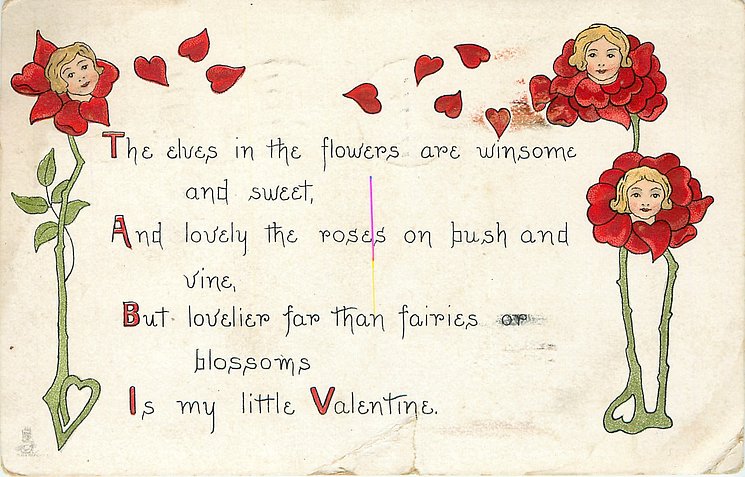 The elves in the flowers are winsome
and sweet,
And lovely the roses on bush and
vine,
But lovelier far than fairies or
blossoms
Is my little Valentine.